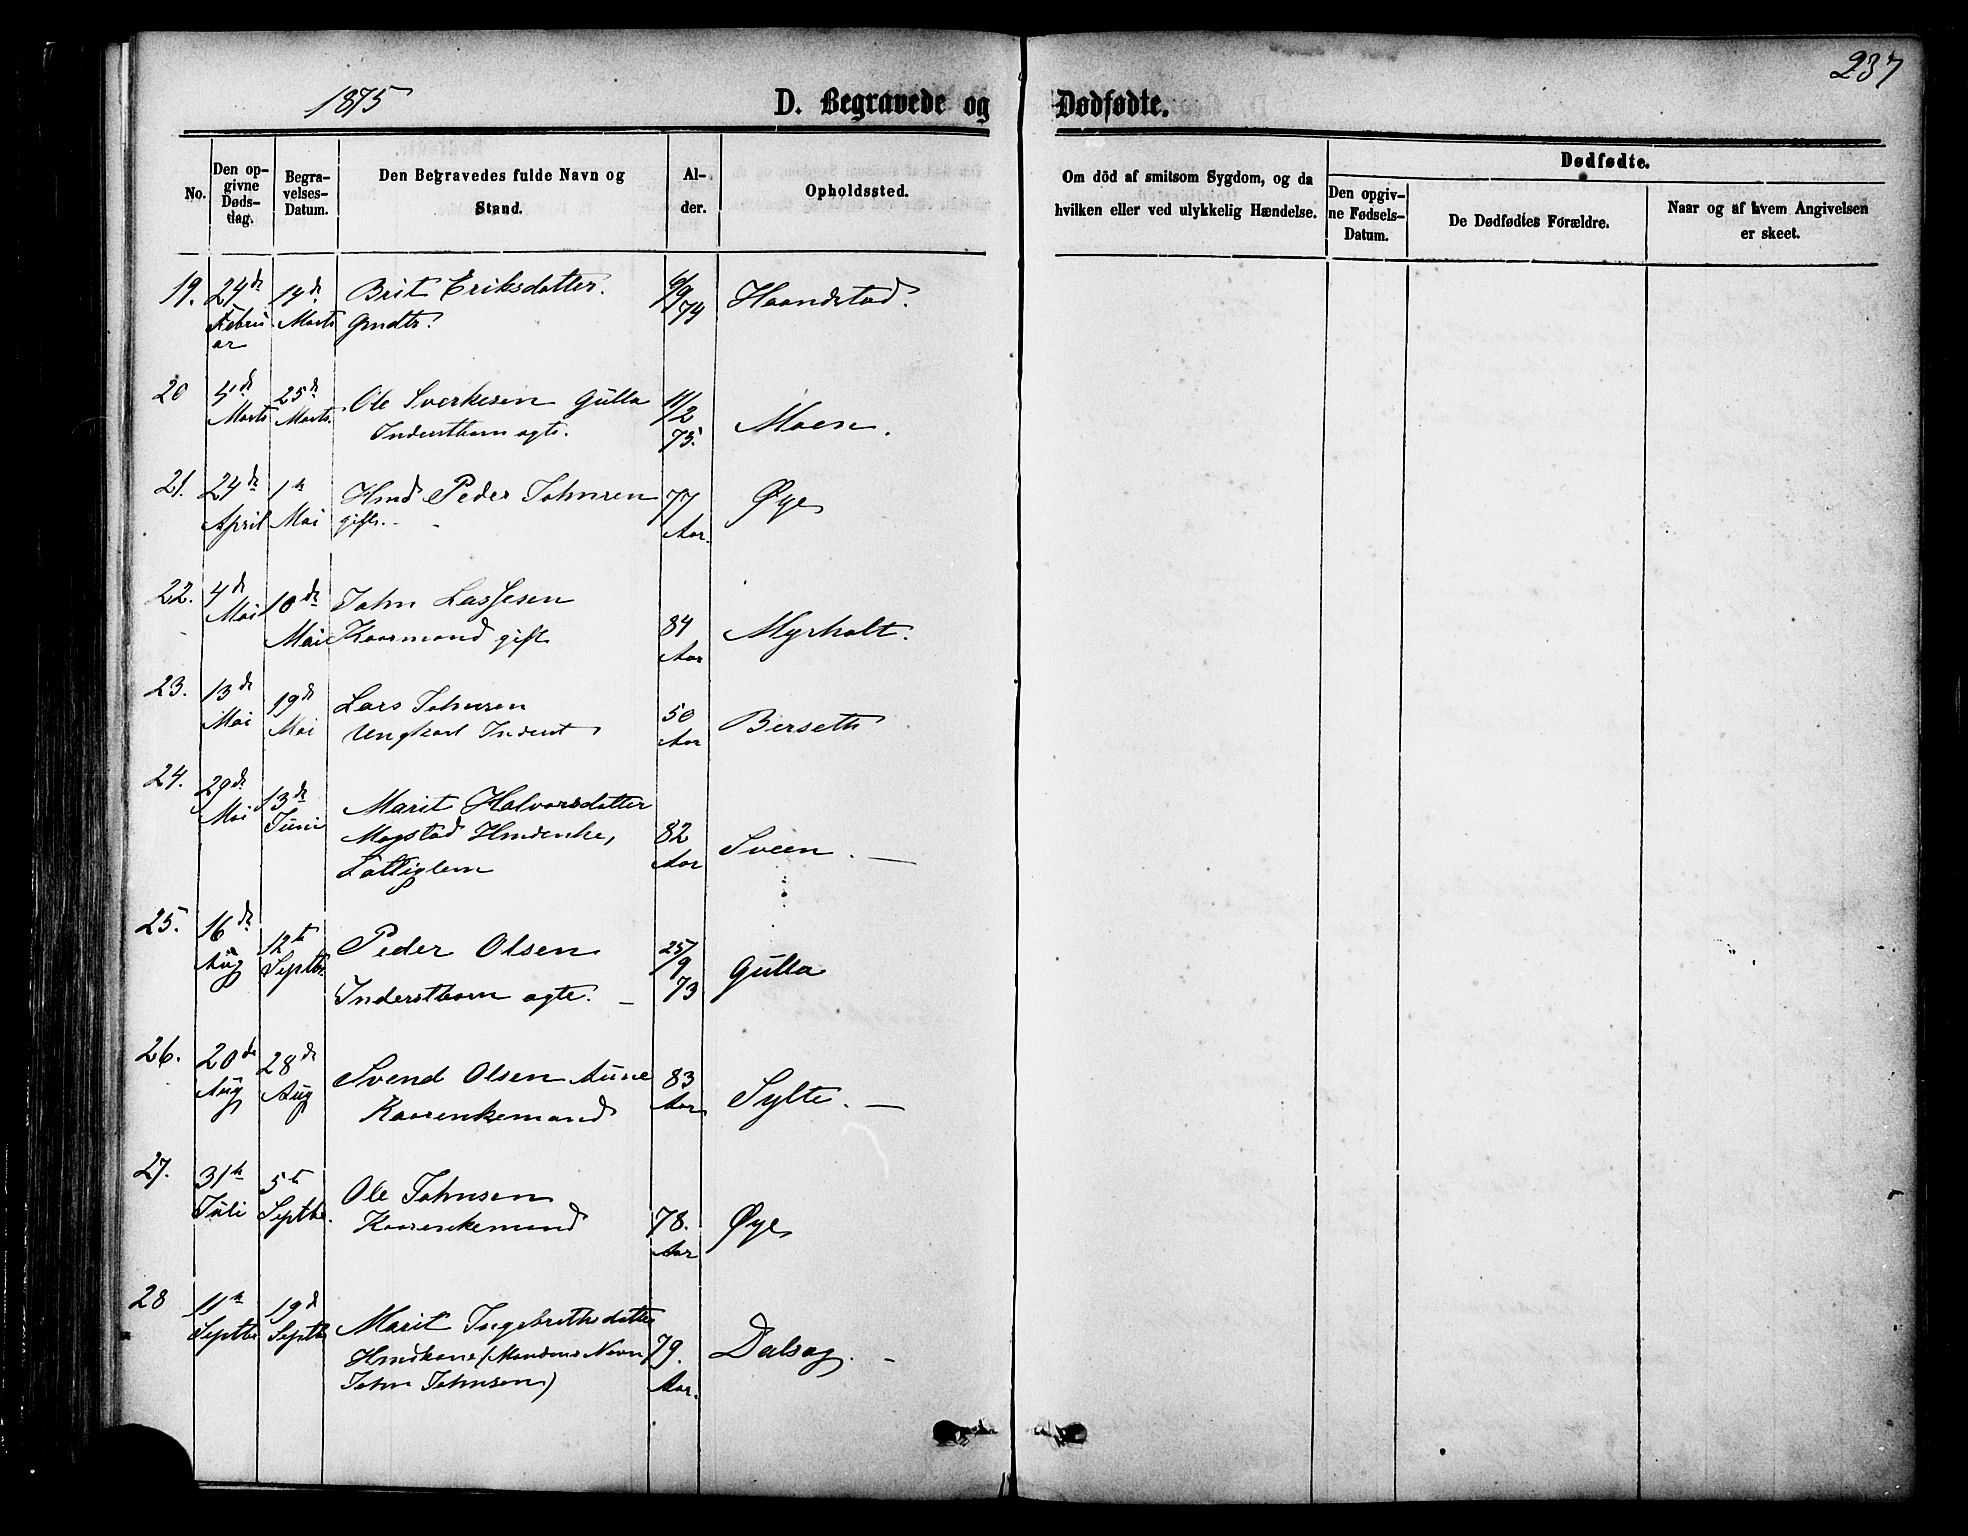 237
1875
D. Begravede og Dødfødte.
No.
Den opgivne Dødsdag.
Begravelses-Datum.
Den Begravedes fulde Navn og Stand.
Alder.
Opholdssted.
Om död af smitsom Sygdom, og da hvilken eller ved ulykkelig Hændelse.
Dødfødte.
Den opgivne Fødsels-Datum.
De Dødfødtes Forældre.
Naar og af hvem Angivelsen er skeet.
19. 24de Februar 14de Marts Brit Eriksdatter. 74 Haandstad.
20 4de Marts 25de Marts. Ole Sverkesen Gulla 11/2 75. Moen.
Inderstbarn ægte.
21. 24de April 1ste Mai Hmd Peder Johnsen 77 Aar. Øye
gift.
22. 4de Mai 10de Mai John Lassesen
Kaarmand gift 84 Aar Myrholt.
23. 13de Mai 19de Mai Lars Johnsen 50 Aar Berseth
Ungkarl Inderst
24. 29de Mai 13de Juni Marit Halvorsdatter
Mogstad Hmdenke, 82 Aar Sveen.
Fattiglem
25. 16de Aug 12te Septbr. Peder Olsen 25/9 73 Gulla
Inderstbarn ægte.
26. 20de Aug 28de Aug Svend Olsen Aune 83 Aar Sylte.
Kaarenkemand
27. 31te Juli 5te Septbr. Ole Johnsen
Kaarenkemand 78. Aar Øye
28 11te Septbr 19de Septbr Marit Ingebrethsdatter
Hmdkone (Mandens Navn 79. Aar. Dalsøg.
John Johnsen)